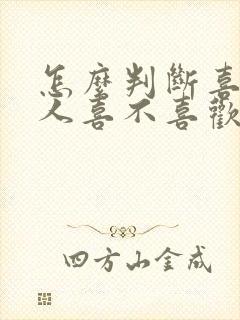 怎麼判斷喜
人喜不喜歡
四方山金成